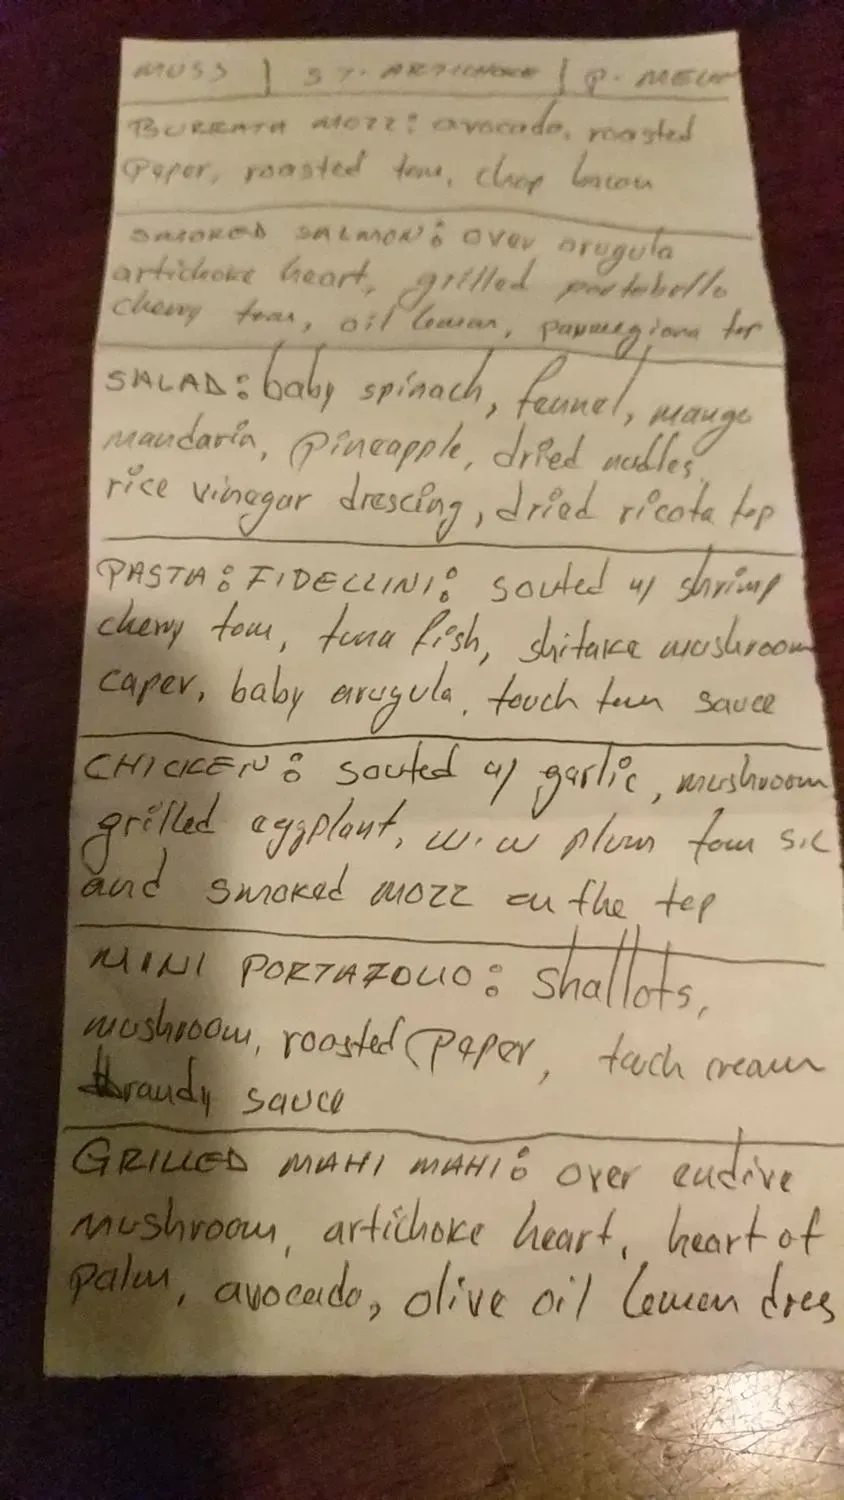 MUSS | ST. ARTICHOKE | P. MELN
BURRATA MOZZ: avocado, roasted
Peper, roasted tom, chop bacon
SMOKED SALMON: over arugula
artichoke heart, grilled portobello
cherry tom, oil lemon, parmegiana top
SALAD: baby spinach, fennel, mango
mandarin, pineapple, dried nudles,
rice vinegar drescing, dried ricota top
PASTA: FIDELLINI: souted w/ shrimp
cherry tom, tuna fish, shitake mushroom
caper, baby arugula, touch tom sauce
CHICKEN: souted w/ garlic, mushroom
grilled eggplant, w.w plum tom S.C
and smoked mozz on the top
MINI PORTAFOLIO: Shallots,
mushroom, roasted Peper, touch cream
brandy sauce
GRILLED MAHI MAHI: over endive
mushroom, artichoke heart, heart of
palm, avocado, olive oil lemon dres